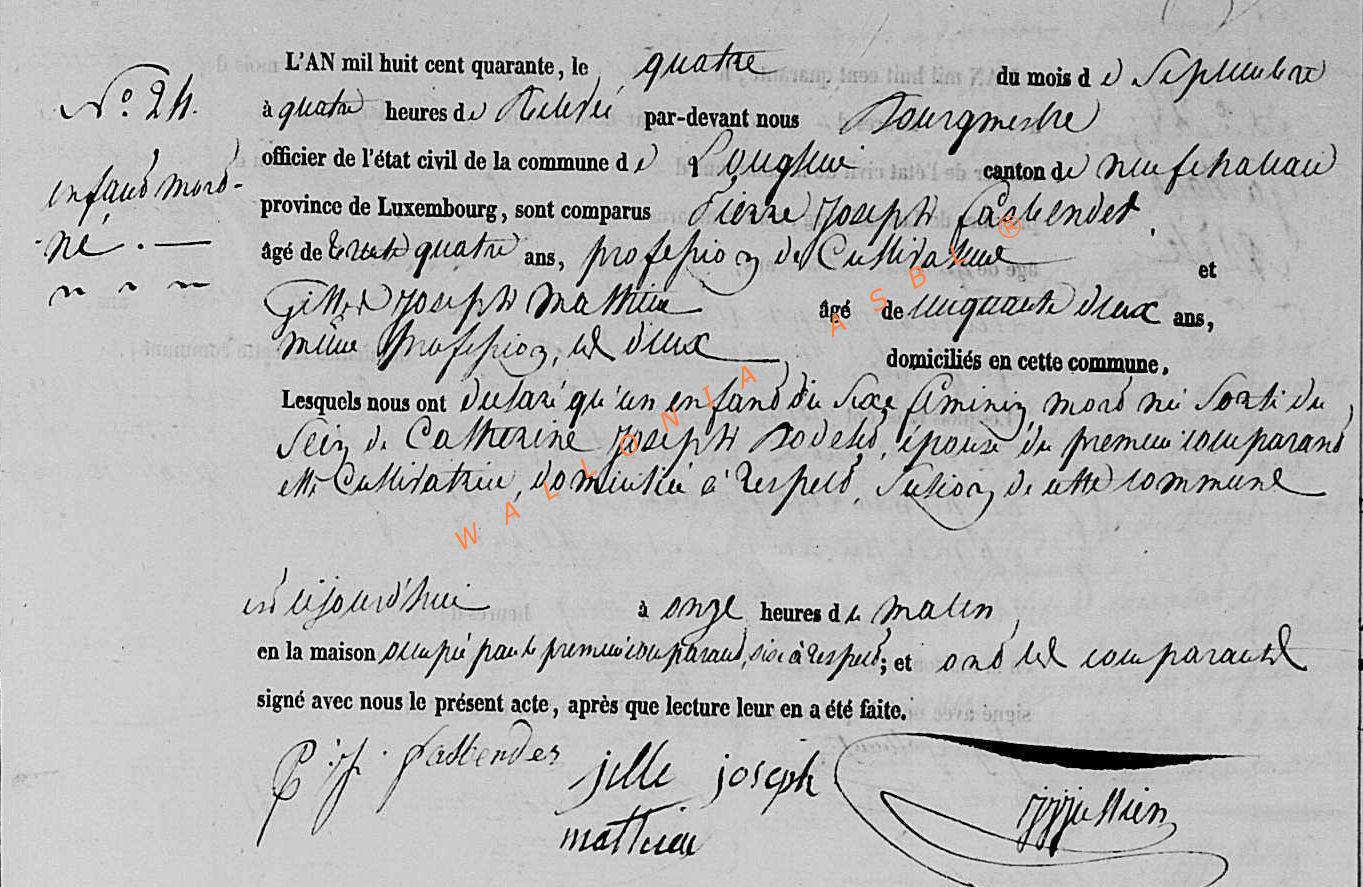 N.° 24.
enfant mort-
né. —
L'AN mil huit cent quarante, le quatre du mois de Septembre
à quatre heures de Relevée par-devant nous Bourgmestre
officier de l'état civil de la commune de Longlier canton de neufchateau
province de Luxembourg, sont comparus Pierre Joseph Fasbender
âgé de trente quatre ans, profession de Cultivateur et
Gille Joseph Mathieu âgé de cinquante deux ans,
même profession, les deux domiciliés en cette commune.
Lesquels nous ont déclaré qu'un enfant du Sexe féminin mort né Sorti du
Sein de Catherine Joseph épouse du premier comparant
Cultivatrice, domiciliée à Respelt, Section de cette commune
cejourd'hui à onze heures du matin
en la maison occupée par le premier comparant, sise à Respelt; et ont les comparants
signé avec nous le présent acte, après que lecture leur en a été faite.
P. j. fasbender jille joseph
mathieu
WALLONIA ASBL ®